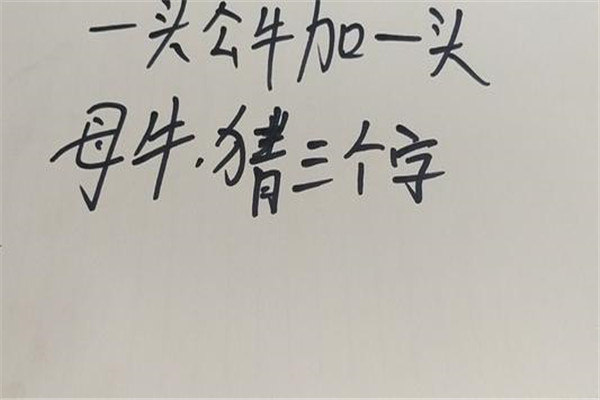 一头公牛加一头
母牛.猜三个字